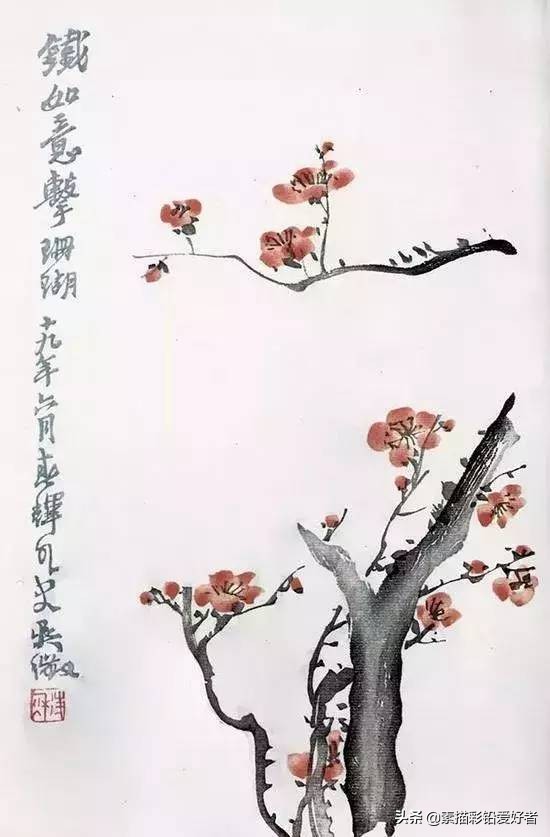 鐵如意擊珊瑚 十九年六月春輝外史吳徵
头条@素描彩铅爱好者